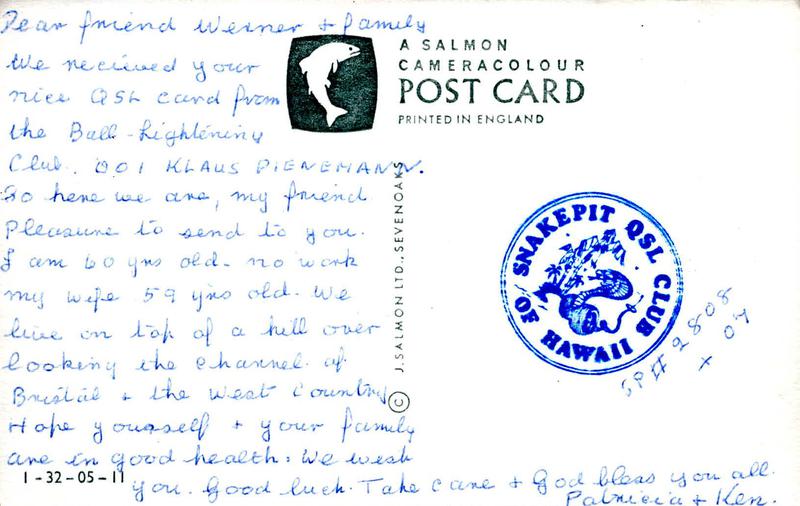 Dear friend Werner + family
We recieved your
nice QSL card from
the Ball-Lightening
Club. 001 KLAUS DIENEMANN.
So here we are, my friend
Pleasure to send to you.
I am 60 yrs old. no work
my wife 59 yrs old. We
live on top of a hill over
looking the channel of
Bristal + the West Country
Hope yourself + your family
are in good health. We wish
you. Good luck. Take care + God bless you all.
Patricia + Ken.
1-32-05-11
A SALMON
CAMERACOLOUR
POST CARD
PRINTED IN ENGLAND
© J. SALMON LTD., SEVENOAKS
SNAKEPIT QSL CLUB
OF HAWAII
SPH 2808
x 04